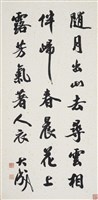 隨月出山去尋雲相
伴歸春晨花上
露芳氣著人衣